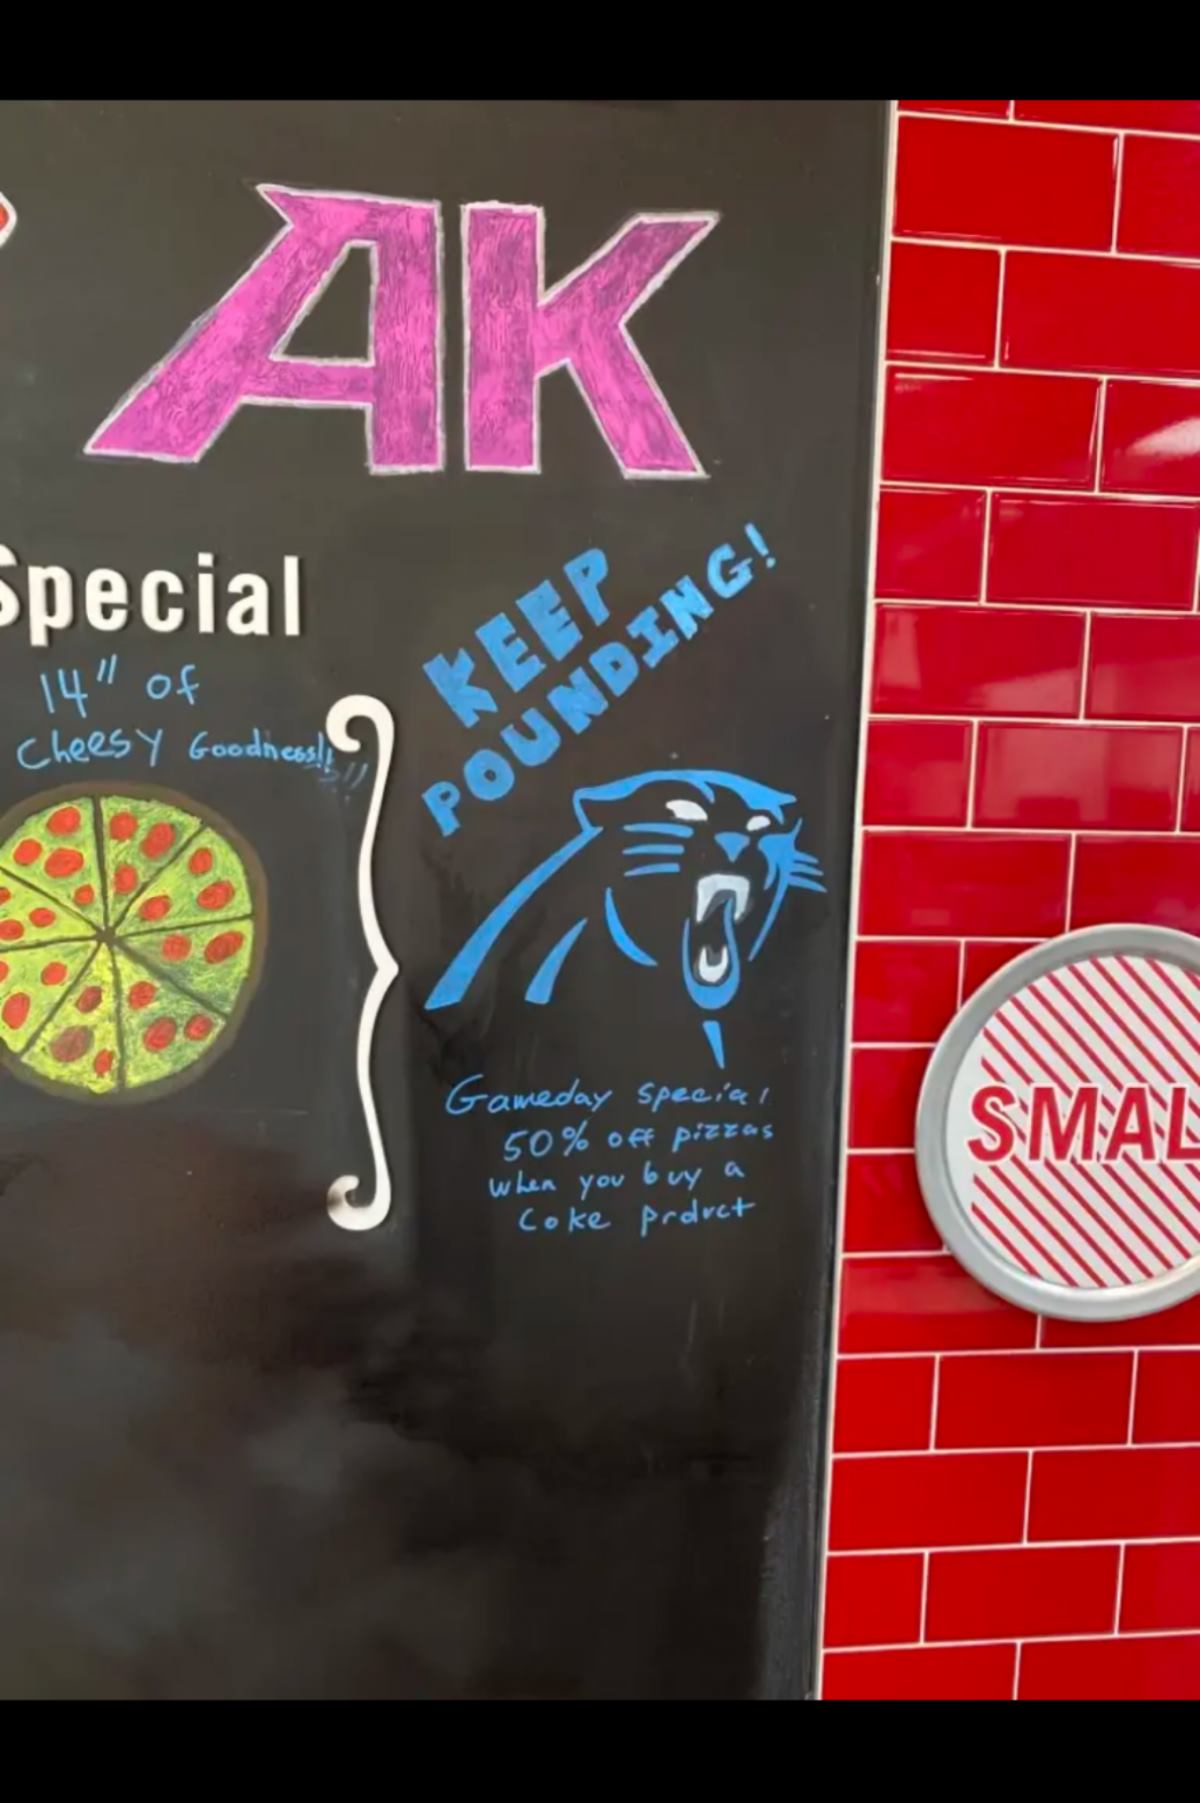 AK
Special
14" of
Cheesy Goodness!!
KEEP
POUNDING!
Gameday special
50% off pizzas
when you buy a
Coke prdvct
SMAL